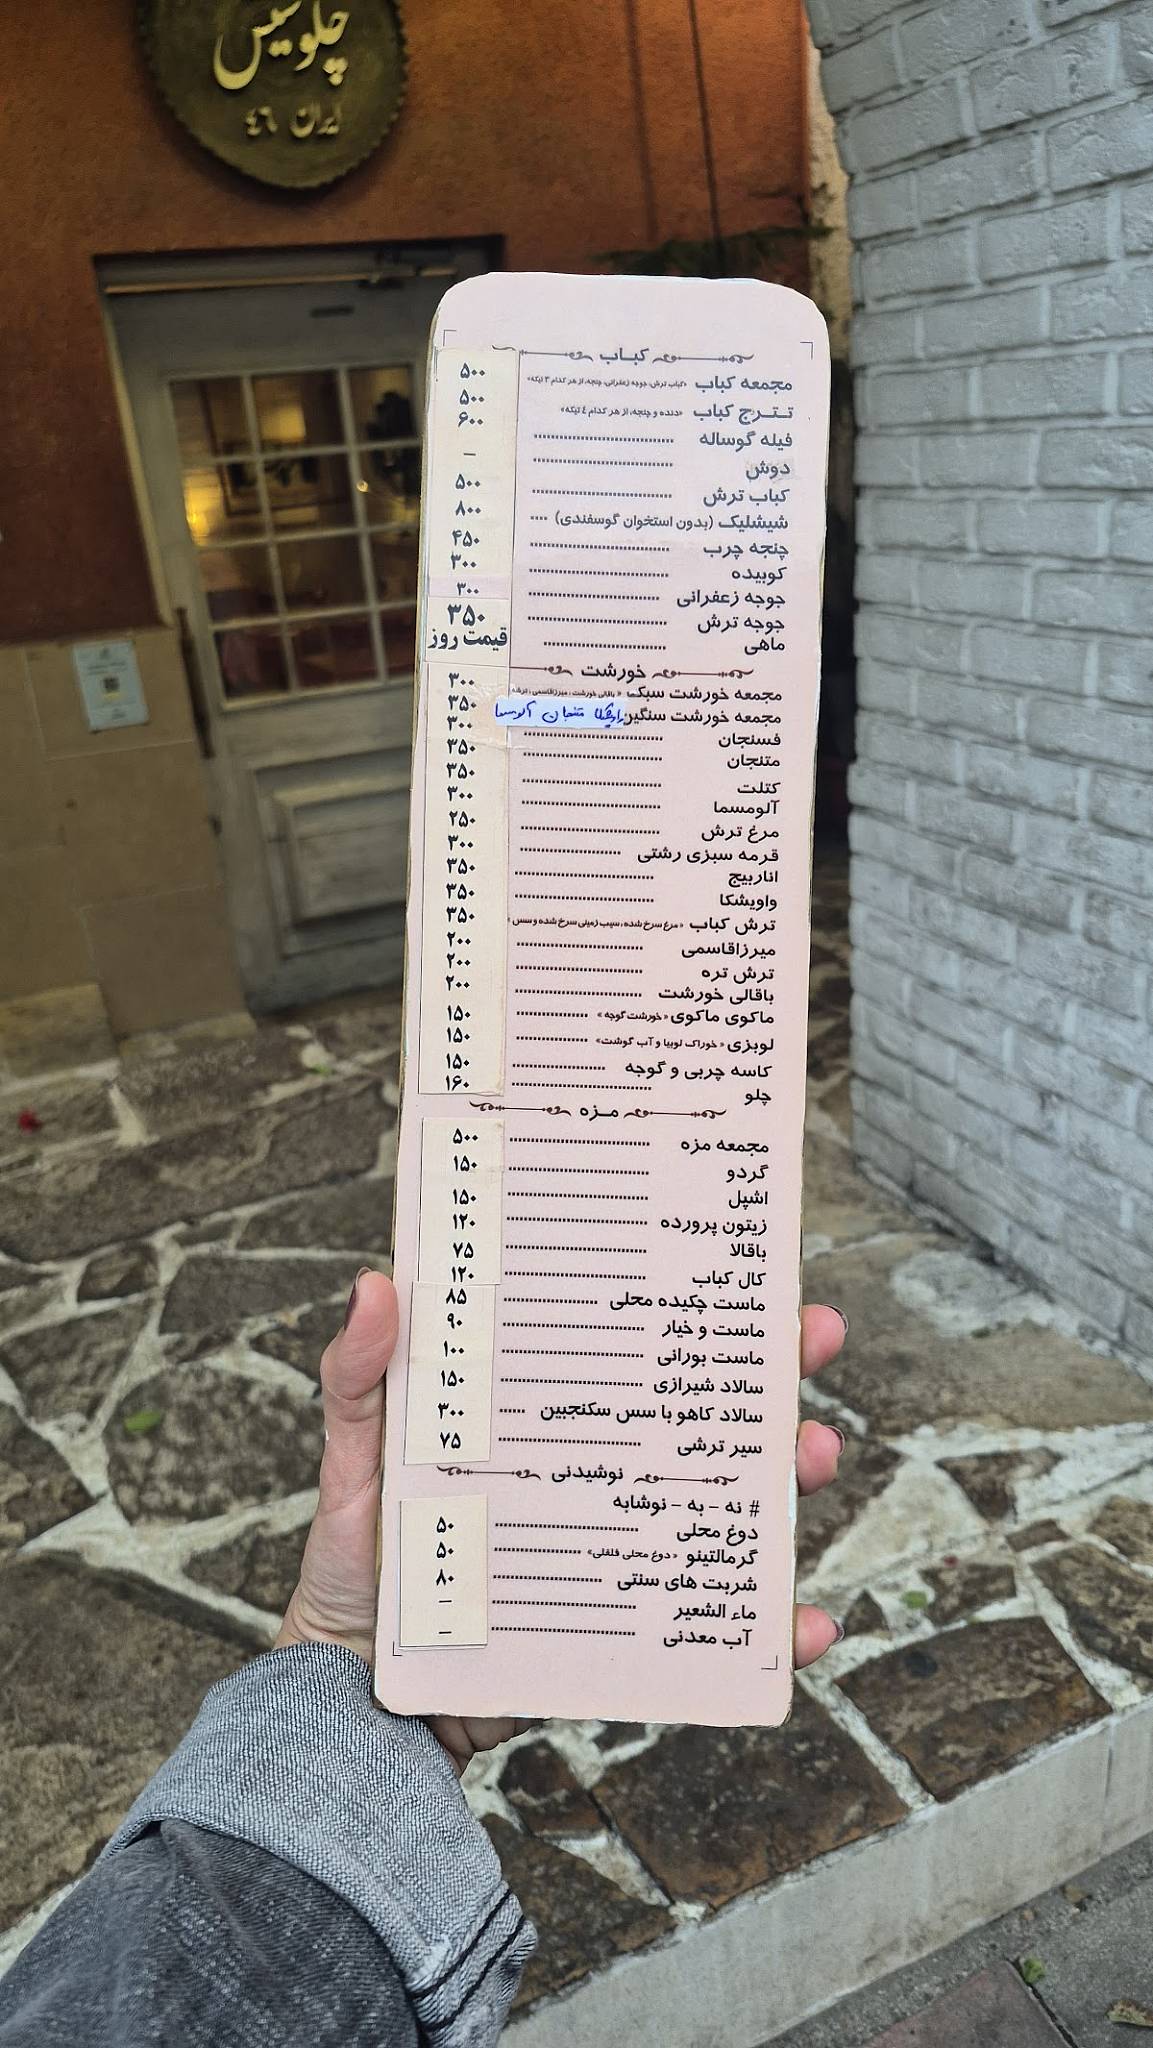 چلو
ایران ٤٦
کباب
مجمعه کباب «کباب ترش، جوجه زعفرانی، چنجه، از هر کدام ۳ تیکه» ۵۰۰
تـتـرج کباب «دنده و چنجه، از هر کدام ٤ تیکه» ۵۰۰
فیله گوساله ۶۰۰
دوش —
کباب ترش ۵۰۰
شیشلیک (بدون استخوان گوسفندی) ۸۰۰
چنجه چرب ۴۵۰
کوبیده ۳۰۰
جوجه زعفرانی ۳۰۰
جوجه ترش ۳۵۰
ماهی قیمت روز
خورشت
مجمعه خورشت سبک « باقالی خورشت ، میرزاقاسمی ، ترشه ۳۰۰
مجمعه خورشت سنگین متنجان آلومسما ۳۵۰
فسنجان ۳۰۰
متنجان ۳۵۰
کتلت ۳۵۰
آلومسما ۳۰۰
مرغ ترش ۲۵۰
قرمه سبزی رشتی ۳۰۰
اناربیج ۳۵۰
واویشکا ۳۵۰
ترش کباب «مرغ سرخ شده ، سیب زمینی سرخ شده و سس ۳۵۰
میرزاقاسمی ۲۰۰
ترش تره ۲۰۰
باقالی خورشت ۲۰۰
ماکوی ماکوی « خورشت گوجه » ۱۵۰
لوبزی « خوراک لوبیا و آب گوشت» ۱۵۰
کاسه چربی و گوجه ۱۵۰
چلو ۱۶۰
مـزه
مجمعه مزه ۵۰۰
گردو ۱۵۰
اشپل ۱۵۰
زیتون پرورده ۱۲۰
باقالا ۷۵
کال کباب ۱۲۰
ماست چکیده محلی ۸۵
ماست و خیار ۹۰
ماست بورانی ۱۰۰
سالاد شیرازی ۱۵۰
سالاد کاهو با سس سکنجبین ۳۰۰
سیر ترشی ۷۵
نوشیدنی
# نه – به – نوشابه
دوغ محلی ۵۰
گرمالتینو « دوغ محلی فلفلی» ۵۰
شربت های سنتی ۸۰
ماء الشعیر —
آب معدنی —